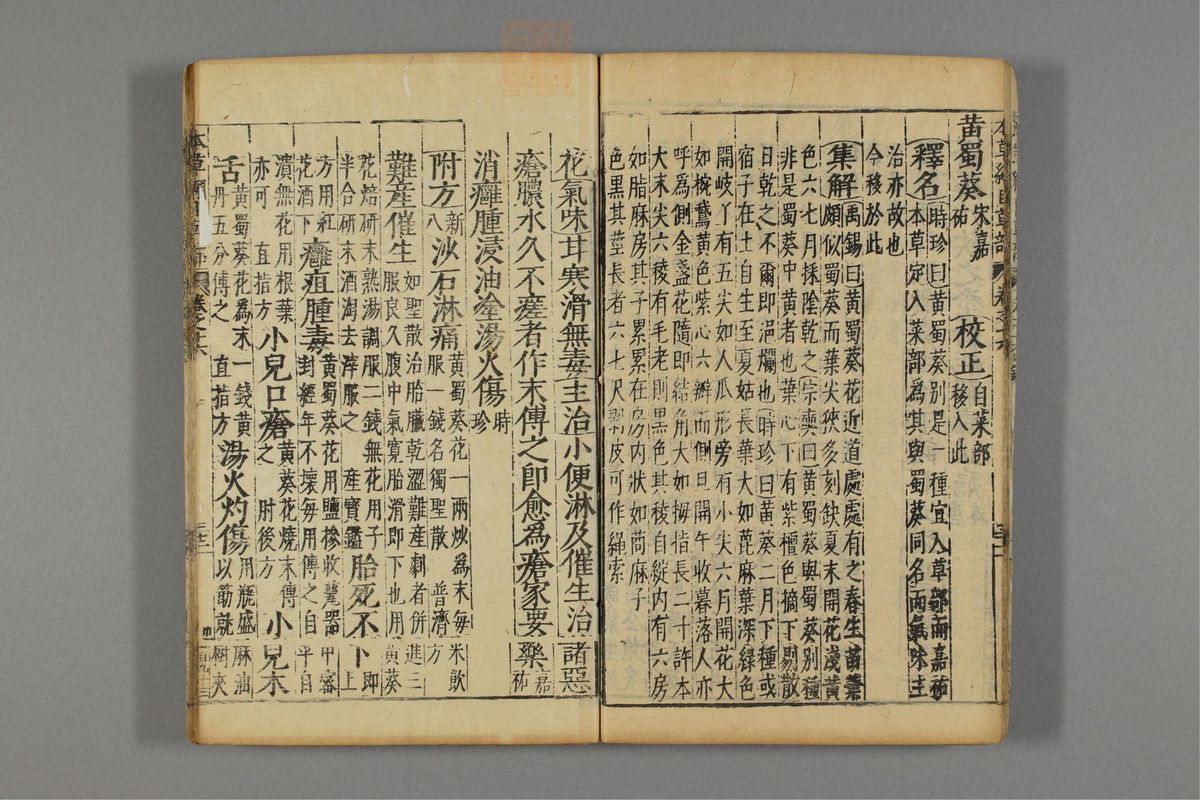 黃蜀葵宋嘉祐 校正自菜部移入此
釋名時珍曰黃蜀葵別是一種宜入草部而嘉祐
本草定入菜部為其與蜀葵同名而氣味主
治亦故也
今移於此
集解禹錫曰黃蜀葵花近道處處有之春生苗葉
頗似蜀葵而葉尖狹多刻缺夏末開花淺黃
色六七月採陰乾之宗奭曰黃蜀葵與蜀葵別種
非是蜀葵中黃者也葉心下有紫檀色摘下剔散
日乾之不爾即浥爛也時珍曰黃葵二月下種或
宿子在土自生至夏始長葉大如蓖麻葉深綠色
開岐丫有五尖如人爪形旁有小尖六月開花大
如椀鵞黃色紫心六瓣而側旦開午收暮落人亦
呼為側金盞花隨即結角大如拇指長二寸許本
大末尖六稜有毛老則黑色其稜自綻內有六房
如脂麻房其子累累在房內狀如苘麻子
色黑其莖長者六七尺剥皮可作繩索
花氣味甘寒滑無毒主治小便淋及催生治諸惡
瘡膿水久不瘥者作末傅之即愈為瘡家要藥嘉祐
消癰腫浸油塗湯火傷時珍
附方新八沙石淋痛黃蜀葵花一兩炒為末每米飲
服一錢名獨聖散 普濟方
難產催生如聖散治胎臟乾澀難產劇者併進三
服良久腹中氣寬胎滑即下也用黃葵
花焙研末熟湯調服二錢無花用子
半合研末酒淘去滓服之 產寶鑑胎死不下即上
方用紅
花酒下癰疽腫毒黃蜀葵花用鹽摻收瓷器中密
封經年不壞每用傅之自平自
潰無花用根葉
亦可 直指方小兒口瘡黃葵花燒末傅
之 肘後方小兒木
舌黃蜀葵花為末一錢黃
丹五分傅之 直指方湯火灼傷用瓶盛麻油
以筯就樹夾